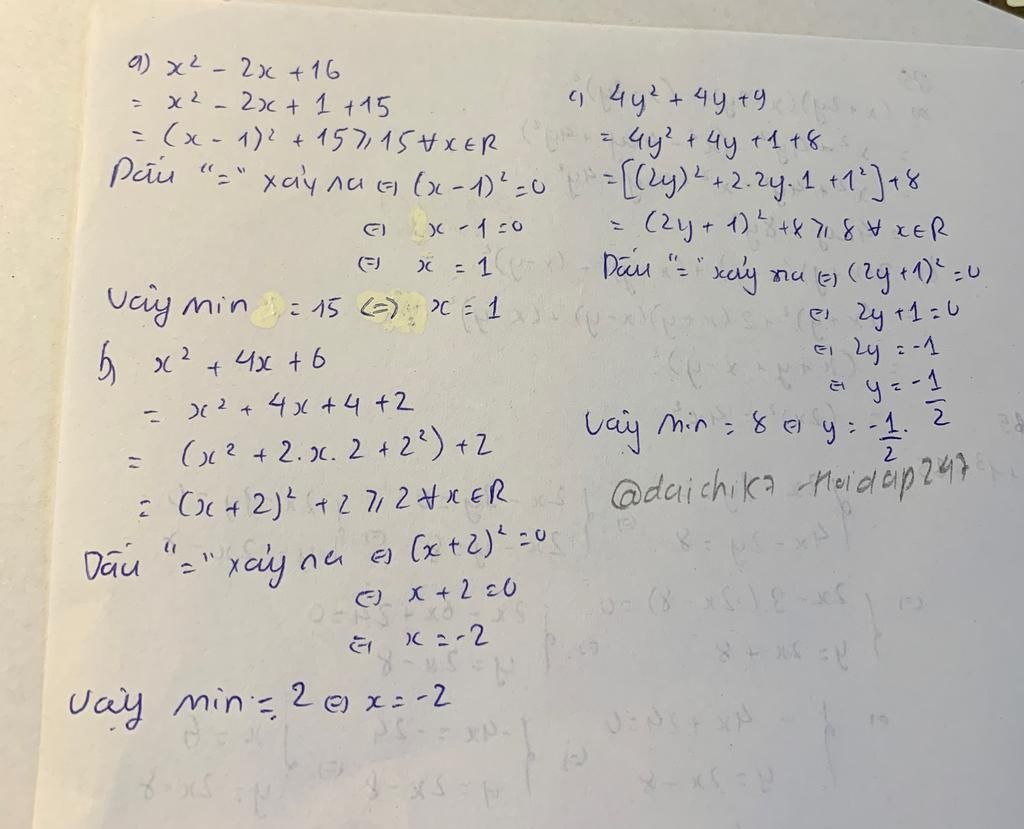 a) x² - 2x + 16
= x² - 2x + 1 + 15
= (x - 1)² + 15 ⩾ 15 ∀ x ∈ R
Dấu "=" xảy ra ⇔ (x - 1)² = 0
⇔ x - 1 = 0
⇔ x = 1
Vậy min = 15 ⇔ x = 1
b) x² + 4x + 6
= x² + 4x + 4 + 2
= (x² + 2.x.2 + 2²) + 2
= (x + 2)² + 2 ⩾ 2 ∀ x ∈ R
Dấu "=" xảy ra ⇔ (x + 2)² = 0
⇔ x + 2 = 0
⇔ x = -2
Vậy min = 2 ⇔ x = -2
c) 4y² + 4y + 9
= 4y² + 4y + 1 + 8
= [(2y)² + 2.2y.1 + 1²] + 8
= (2y + 1)² + 8 ⩾ 8 ∀ x ∈ R
Dấu "=" xảy ra ⇔ (2y + 1)² = 0
⇔ 2y + 1 = 0
⇔ 2y = -1
⇔ y = -1/2
Vậy min = 8 ⇔ y = -1/2.
@daichik7 - Hoidap247